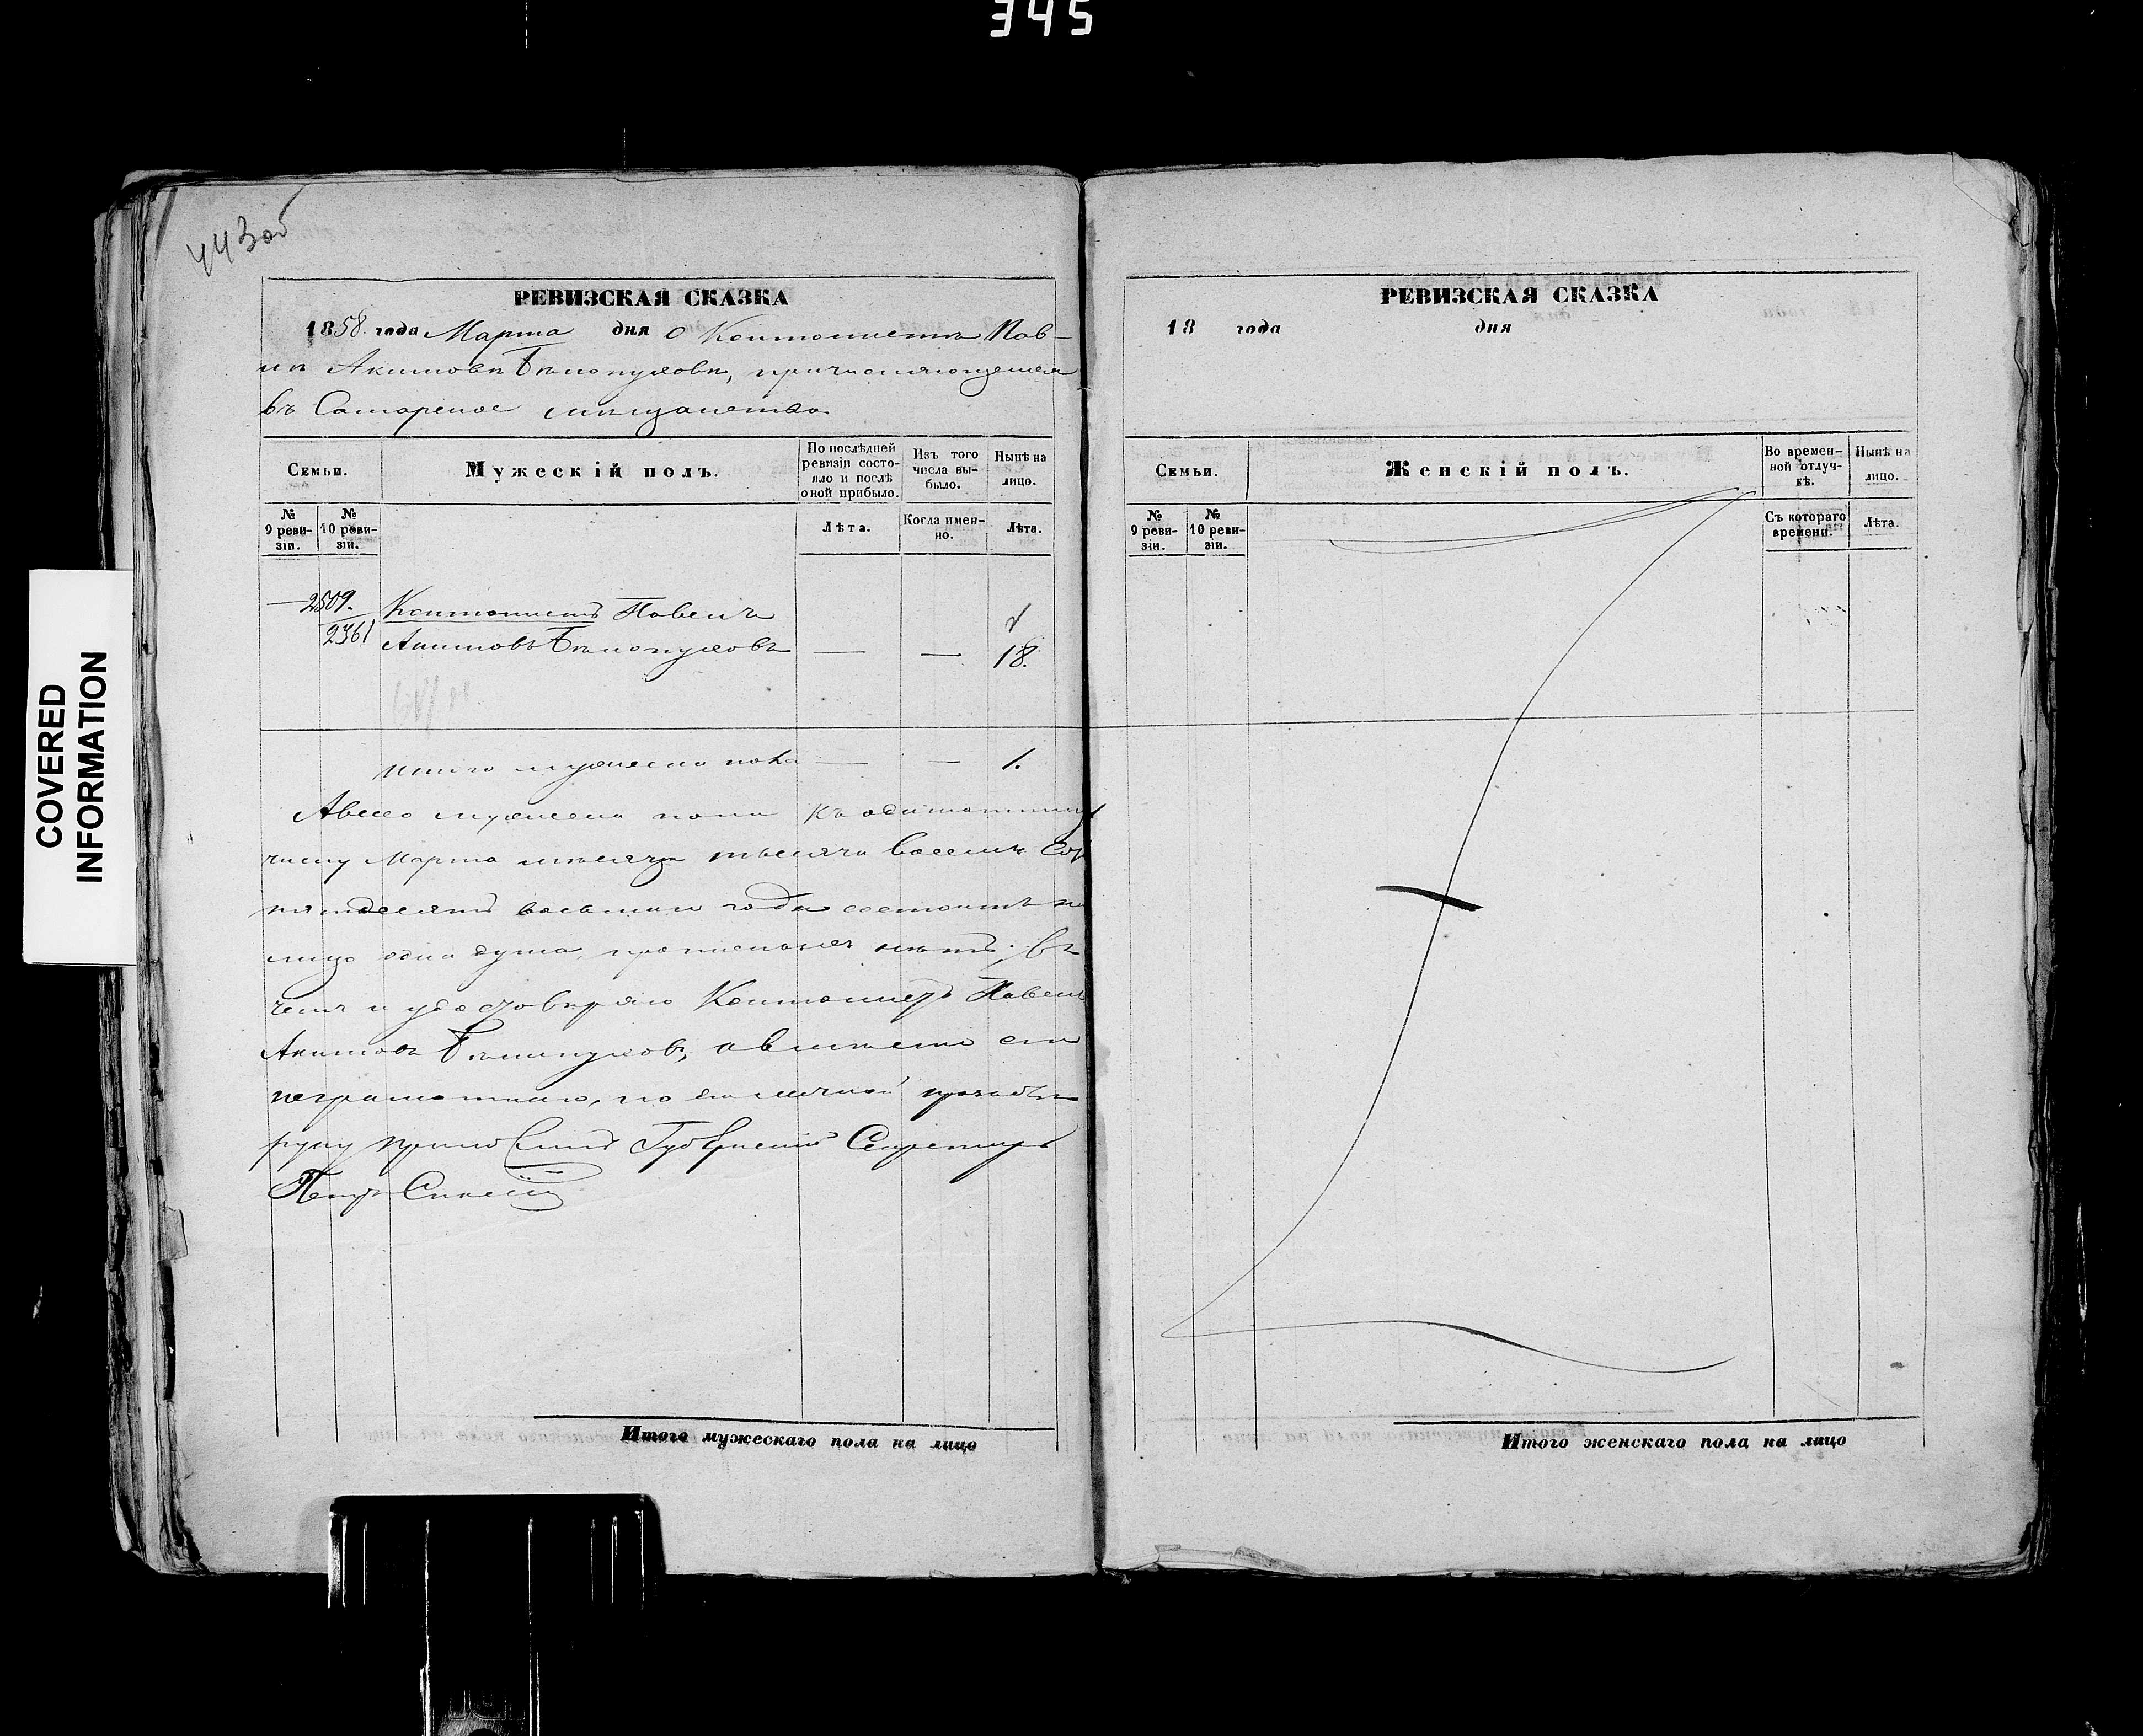 345
COVERED
INFORMATION
443об
РЕВИЗСКАЯ СКАЗКА
1858 года Марта дня О Кантонистѣ Пав-
лѣ Акимовѣ Бѣлопуховѣ, причисляющемся
въ Самарское мѣщанство
Семьи.
Мужескій полъ.
По послѣдней ревизіи состо-
яло и послѣ оной прибыло.
Изъ того числа вы-
было.
Нынѣ на лицо.
№ 9 реви-
зіи.
№ 10 реви-
зіи.
Лѣта.
Когда имен-
но.
Лѣта.
— 2509.
2361
Кантонистъ Павелъ
Акимовъ Бѣлопуховъ — — 18.
Итого мужеска пола — — 1.
А всего мужеска пола къ
числу Марта мѣсяца тысяча восемь сот
пятдесятъ восьмаго года состоитъ на
лицо одна душа, прописныхъ нѣтъ; въ
чемъ и удостовѣряю Кантонистъ Павелъ
Акимовъ Бѣлопуховъ, а вмѣсто его
неграмотнаго, по его личной прозьбѣ
руку приложилъ Губернскій Секретарь
Петръ
Итого мужескаго пола на лицо
РЕВИЗСКАЯ СКАЗКА
18 года дня
Семьи.
Женскій полъ.
Во времен-
ной отлуч-
кѣ.
Нынѣ на
лицо.
№ 9 реви-
зіи.
№ 10 реви-
зіи.
Съ котораго
времени.
Лѣта.
Итого женскаго пола на лицо